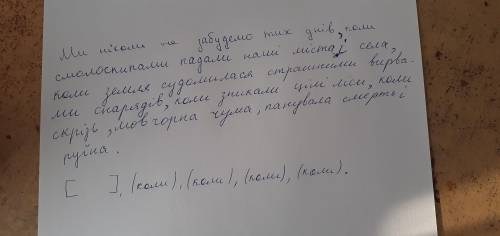 Ми ніколи не забудемо тих днів, коли
смолоскипами падали наші міста й села,
коли земля судомилася страшними вирва-
ми снарядів, коли зникали цілі ліси, коли
скрізь, мов чорна чума, панувала смерть і
руїна.
[ ], (коли), (коли), (коли), (коли).